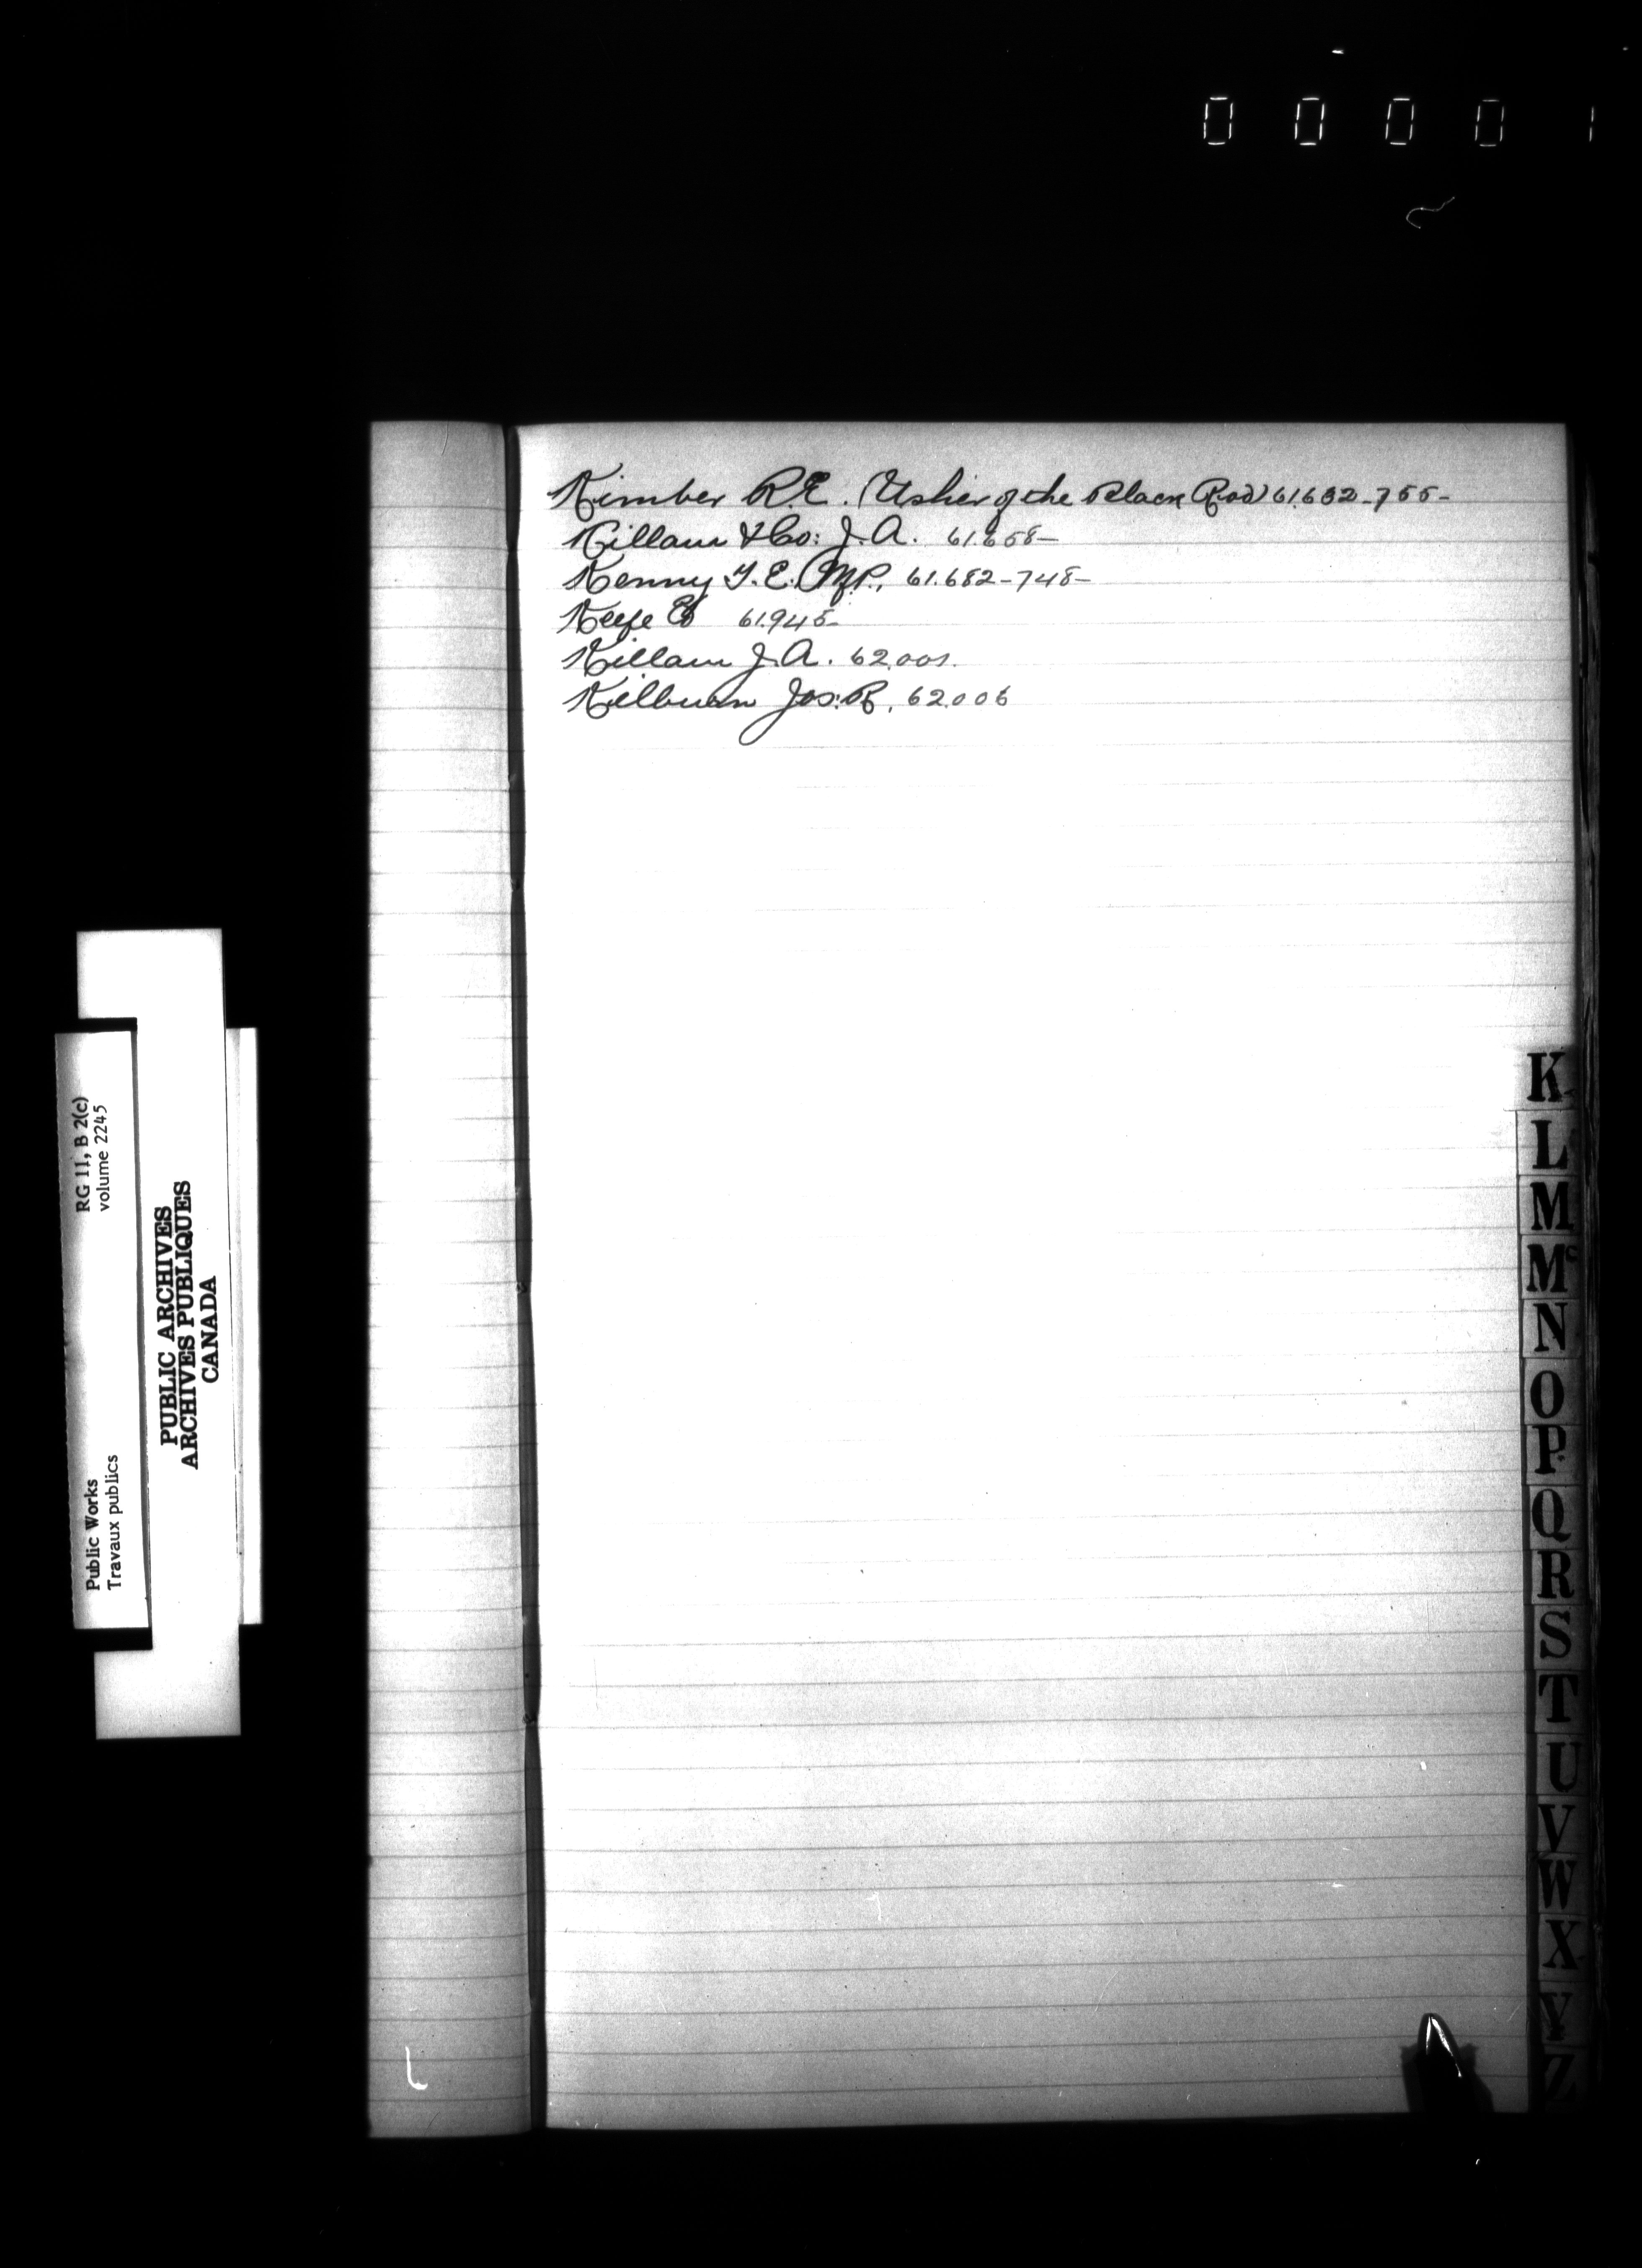 0 0 0 0 1
Kimber R.E. (Usher of the Black Rod) 61.632-755-
Killam & Co: J.A. 61.658-
Kenny T.E. M.P. 61.682-748-
Keefe 61.945-
Killam J.A. 62.001.
Kilburn Jos: R. 62.006
K
L
M
Mc
N
O
P
Q
R
S
T
U
V
W
X
Y
Z
RG 11, B 2(c)
volume 2245
Public Works
Travaux publics
PUBLIC ARCHIVES
ARCHIVES PUBLIQUES
CANADA